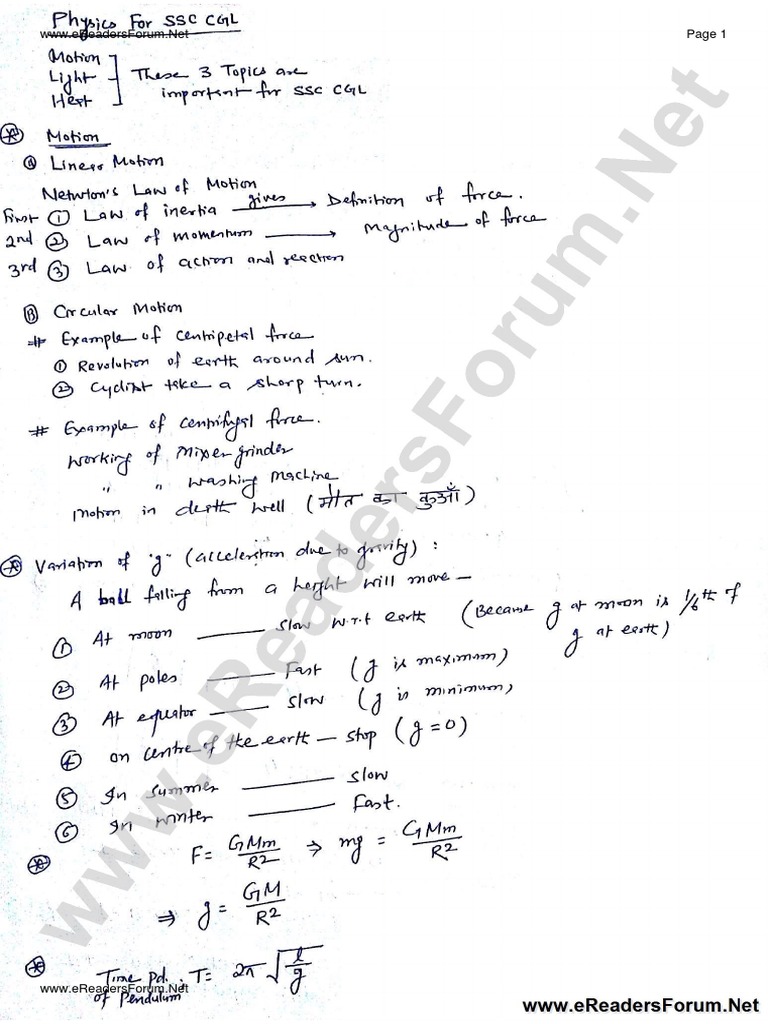 Physics For SSC CGL
www.eReadersForum.Net
Page 1
Motion
Light
Heat
These 3 Topics are
important for SSC CGL
Motion
Ⓐ Linear Motion
Newton's Law of Motion
First ① Law of inertia gives → Definition of force.
2nd ② Law of momentum → Magnitude of force
3rd ③ Law of action and reaction
Ⓑ Circular Motion
# Example of centripetal force
① Revolution of earth around sun.
② Cyclist take a sharp turn.
# Example of centrifugal force.
Working of Mixer grinder
" " washing machine
Motion in death well (मौत का कुआँ)
Variation of 'g' (acceleration due to gravity) :
A ball falling from a height will move —
① At moon — slow w.r.t earth (Because g at moon is 1/6th of
g at earth)
② At poles — Fast (g is maximum)
③ At equator — slow (g is minimum)
④ on centre of the earth — stop (g=0)
⑤ In summer — slow
⑥ In winter — Fast.
F = GMm/R² ⇒ mg = GMm/R²
⇒ g = GM/R²
Time Pd. of Pendulum : T = 2π√(l/g)
www.eReadersForum.Net
www.eReadersForum.Net
www.eReadersForum.Net